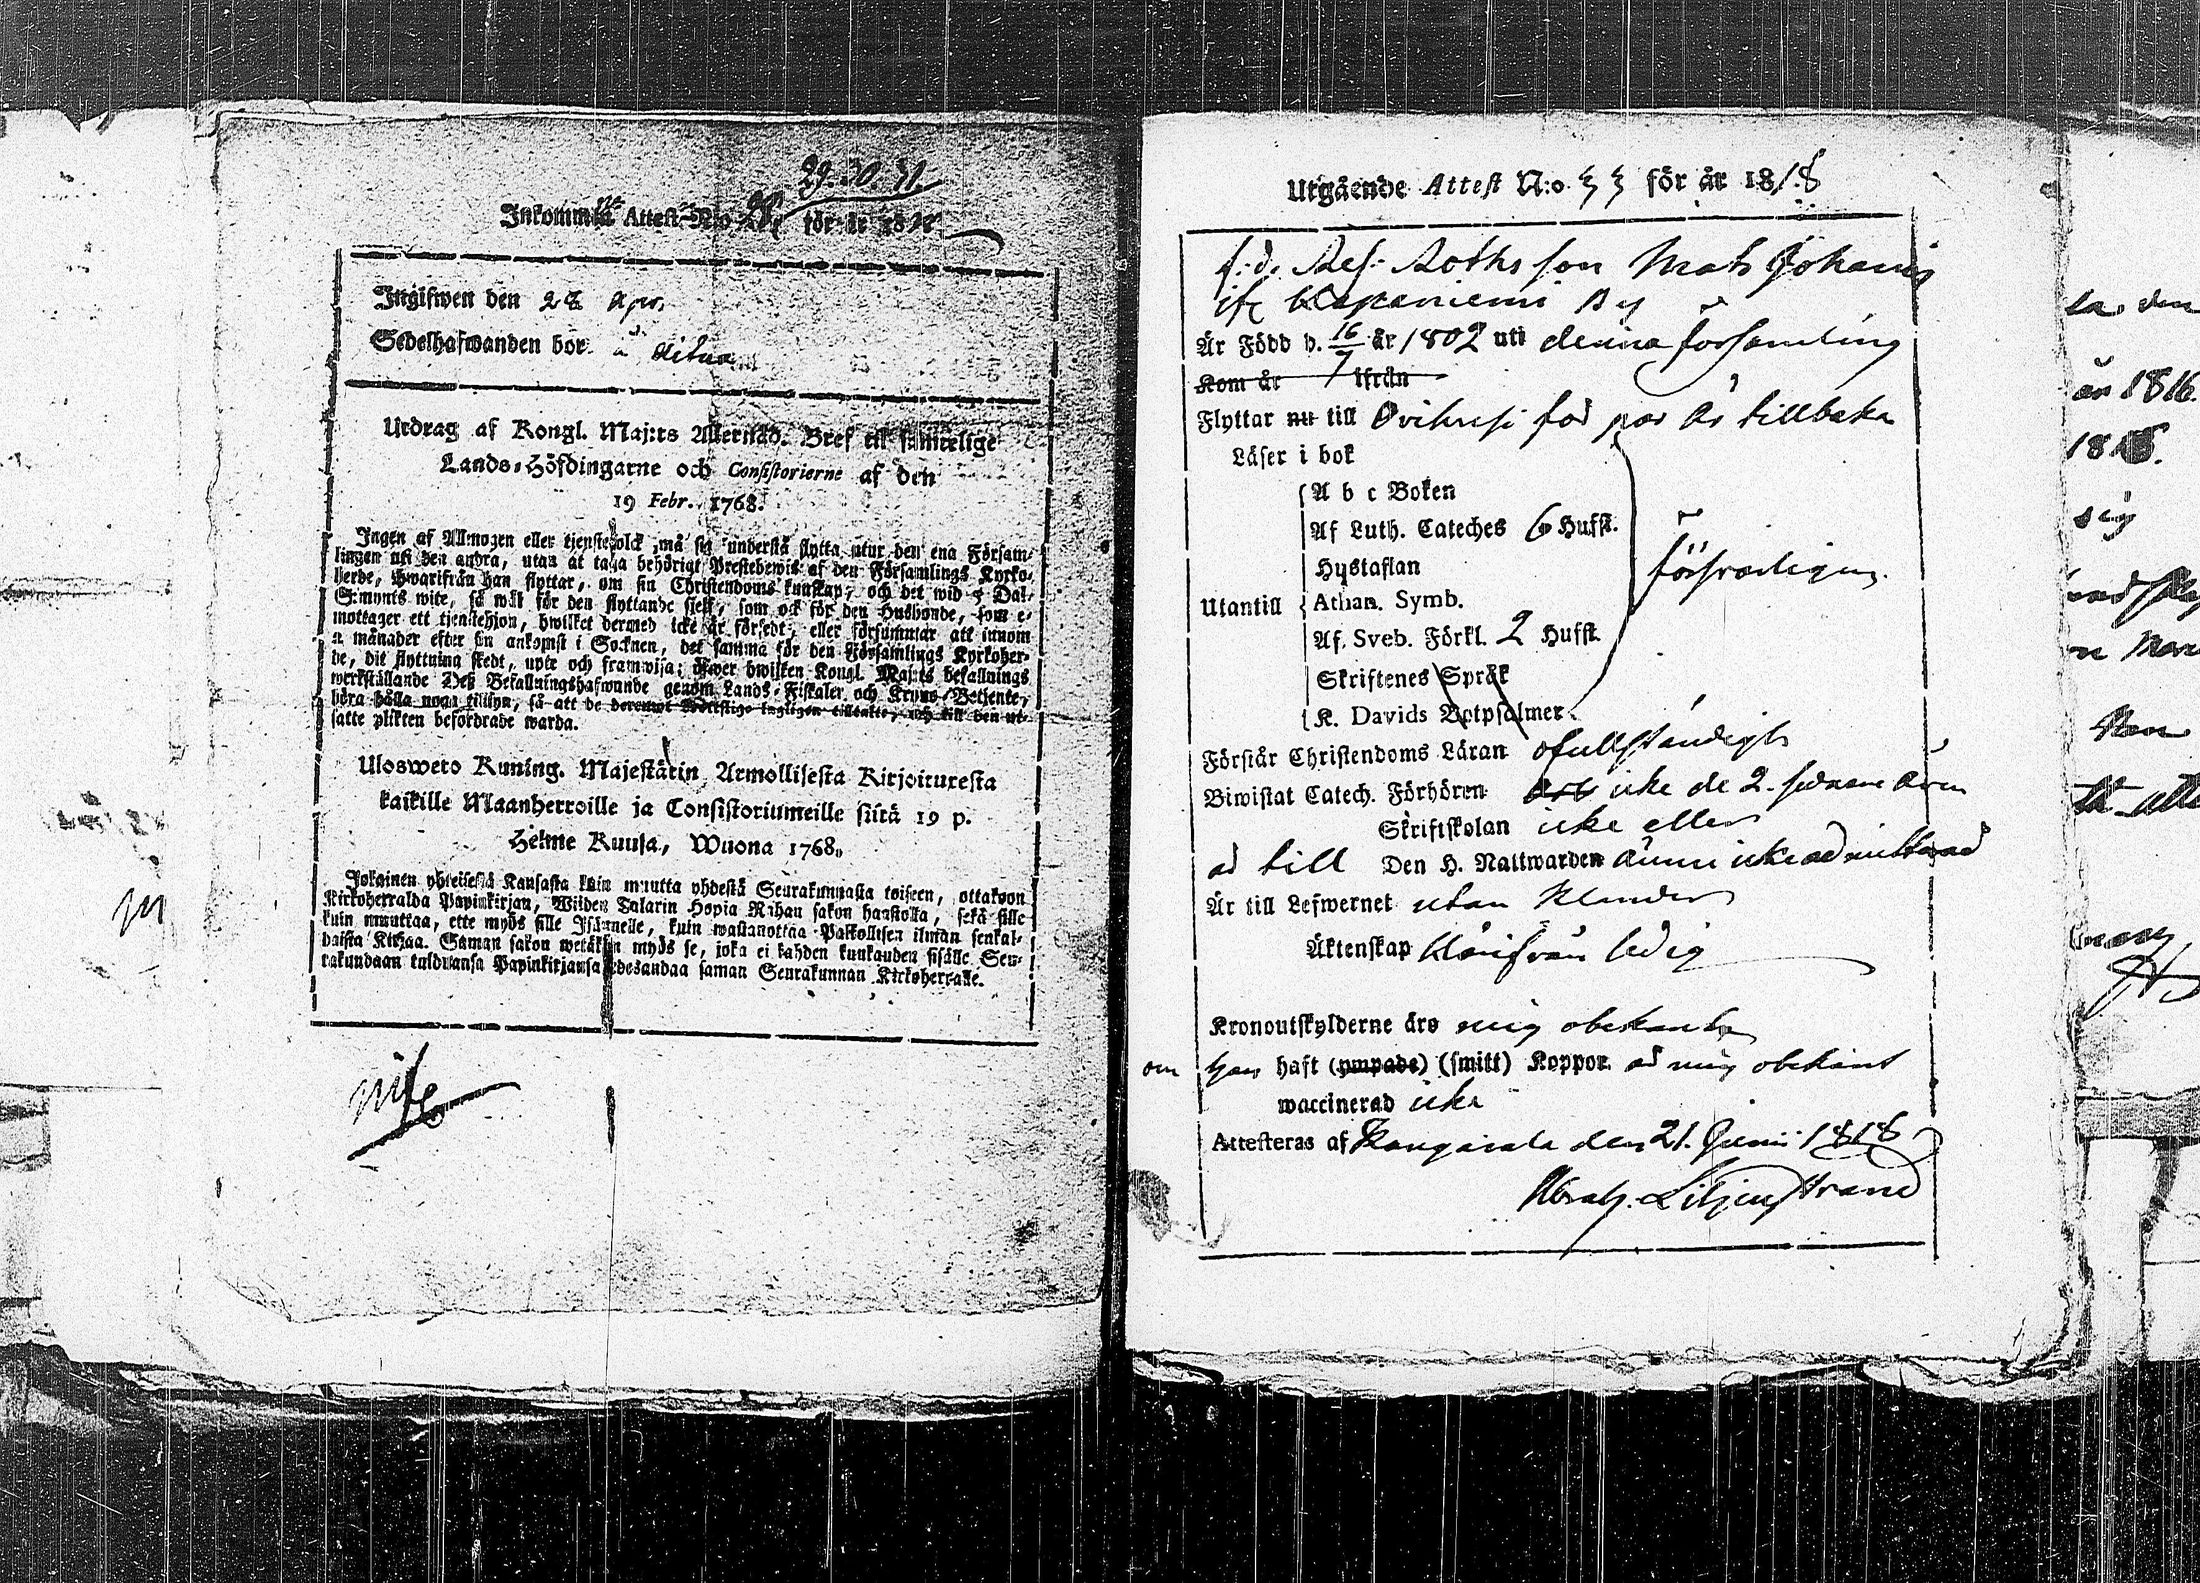 29. 30. 31.
Inkomm Attest N:o 28 för år 18
Ingifwen den 28 Apr.
Sedelhafwanden bor
Utdrag af Kongl. Maj:ts Allernåd. Bref til samtelige
Lands-Höfdingarne och Consistorierne af den
19 Febr. 1768.
Ingen af Allmogen eller tjenstefolck må sig understå flytta utur den ena Försam-
lingen uti den andra, utan at taga behörigt Prestebewis af den Församlings Kyrko-
herde, hwarifrån han flyttar, om sin Christendoms kunskap, och det wid 5 Dal.
S:mynts wite, så wäl för den flyttande sielf, som ock för den Husbonde, som e-
mottager ett tjenstehjon, hwilket dermed icke är försedt, eller försummar att innom
2 månader efter sin ankomst i Socknen, det samma för den Församlings Kyrkoher-
de, dit flyttning skedt, upte och framwisa; öfwer hwilken Kongl. Maj:ts befallnings
werkställande Dess Befallningshafwande genom Lands-Fiskaler och Krono-Betjente,
böra hålla noga tillsyn, så att de deremot brottslige lagligen tilltalte, och till den ut-
satte plikten befordrade warda.
Ulosweto Kuning. Majestätin Armollisesta Kirjoituresta
kaikille Maanherroille ja Consistoriumeille siitä 19 p.
Helme Kuusa, Wuona 1768.
Jokainen yhteisestä Kansasta kuin muutta yhdestä Seurakunnasta toiseen, ottakoon
Kirkoherralda Papinkirjan, Wilden Talarin Hopia Rahan sakon haastolla, sekä sille
kuin muuttaa, ette myös sille Isännelle, kuin wastanottaa Palkollisen ilman senkal-
daista Kirjaa. Saman sakon wetäksen myös se, joka ei kahden kuukauden sisälle Seu-
rakundaan tulduansa Papinkirjansa edesandaa saman Seurakunnan Kirkoherralle.
Utgående Attest N:o 33 för år 1818
f:d. Ref: Roths son Mats Johanis
ifr. Kapeniemi By
Är Född d. 16/7 år 1802 uti denna församling
Kom år ifrån
Flyttar nu till Orihvesi för par år tillbaka
Läser i bok
A b c Boken
Af Luth. Cateches 6 Hufst.
Hustaflan
försvarligen.
Utantill
Athan. Symb.
Af. Sveb. Förkl. 2 Hufst.
Skriftenes Språk
K. Davids Botpsalmer
Förstår Christendoms Läran ofullständigt
Biwistat Catech. Förhören icke de 2. sednare åren
Skriftskolan icke eller
är till Den H. Nattwarden ännu icke admitterad
Är till Lefwernet utan klander
Äktenskap härifrån ledig
Kronoutskylderne äro mig obekanta
om han haft (ympade) (smitt) Koppor är mig obekant
waccinerad icke
Attesteras af Kangasala den 21. Junii 1818
Abrah. Liljenstrand
år 1816.
sig